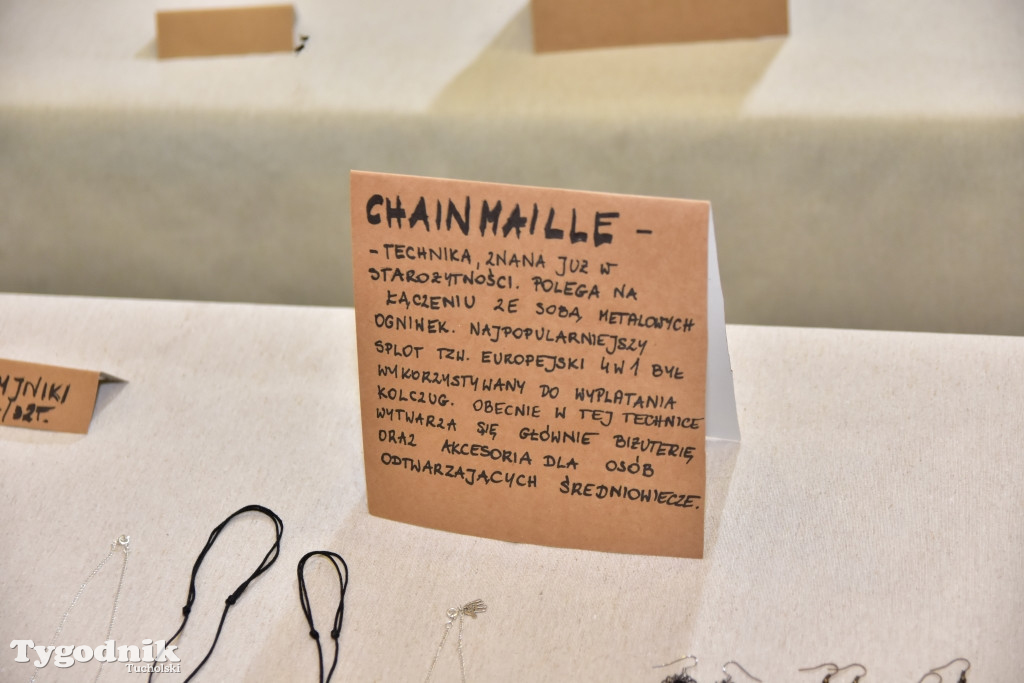 CHAINMAILLE -
- TECHNIKA, ZNANA JUŻ W
STAROŻYTNOŚCI. POLEGA NA
ŁĄCZENIU ZE SOBĄ METALOWYCH
OGNIWEK. NAJPOPULARNIEJSZY
SPLOT TZW. EUROPEJSKI 4W1 BYŁ
WYKORZYSTYWANY DO WYPLATANIA
KOLCZUG. OBECNIE W TEJ TECHNICE
WYTWARZA SIĘ GŁÓWNIE BIŻUTERIĘ
ORAZ AKCESORIA DLA OSÓB
ODTWARZAJĄCYCH ŚREDNIOWIECZE.
Tygodnik
Tucholski